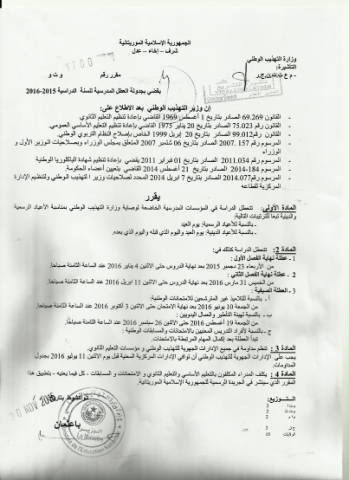 الجمهورية الإسلامية الموريتانية
شرف – إخاء – عدل
وزارة التهذيب الوطني
التأشيرة:
مقرر رقم / و ت و
يقضي بجدولة العطل المدرسية للسنة الدراسية 2015-2016
إن وزير التهذيب الوطني بعد الاطلاع على:
- القانون 69.269 الصادر بتاريخ 1 أغسطس 1969 القاضي بإعادة تنظيم التعليم الثانوي
- القانون رقم 75.023 الصادر بتاريخ 20 يناير 1975 القاضي بإعادة تنظيم التعليم الأساسي العمومي.
- القانون رقم 99.012 الصادر بتاريخ 20 ابريل 1999 الخاص بإصلاح النظام التربوي الوطني.
- المرسوم رقم 157. 2007 الصادر بتاريخ 06 شتمبر 2007 المتعلق بمجلس الوزراء وبصلاحيات الوزير الأول و
الوزراء
- المرسوم رقم 2011.034 الصادر بتاريخ 01 فبراير 2011 القاضي بإعادة تنظيم شهادة الباكلوريا الوطنية
- المرسوم 184-2014 الصادر بتاريخ 21 أغسطس 2014 القاضي بتعيين أعضاء الحكومة
- المرسوم رقم 2014.077 الصادر بتاريخ 7 ابريل 2014 المحدد لصلاحيات وزير التهذيب الوطني ولتنظيم الإدارة
المركزية لقطاعه
يقرر
المادة الأولى: تتعطل الدراسة في المؤسسات المدرسية الخاضعة لوصاية وزارة التهذيب الوطني بمناسبة الأعياد الرسمية
والدينية تبعا للترتيبات التالية:
- بالنسبة للأعياد الرسمية: يوم العيد
- بالنسبة للأعياد الدينية: يوم العيد واليوم الذي قبله واليوم الذي بعده.
المادة 2: تتعطل الدراسة كذلك في:
1 - عطلة نهاية الفصل الأول :
من الأربعاء 23 دجمبر 2015 بعد نهاية الدروس حتى الاثنين 4 يناير 2016 عند الساعة الثامنة صباحا.
2 - عطلة نهاية الفصل الثاني :
من الخميس 31 مارس 2016 بعد نهاية الدروس حتى الاثنين 11 ابريل 2016 عند الساعة الثامنة صباحا.
3 - العطلة الصيفية :
أ – بالنسبة للتلاميذ غير المترشحين للامتحانات الوطنية:
من الجمعة 10 يونيو 2016 بعد نهاية الامتحان حتى الاثنين 3 أكتوبر 2016 عند الساعة الثامنة صباحا.
ب - بالنسبة لهيئة التأطير والعمال اليدويين :
من الجمعة 19 أغسطس 2016 حتى الاثنين 26 شتمبر 2016 عند الساعة الثامنة صباحا.
ج - بالنسبة لأفراد التدريس المعنيين بالامتحانات والمسابقات الوطنية:
تبدأ العطلة بعد إكمال المهام المرتبطة بالامتحانات.
المادة 3 : تنظم مداومة في جميع الإدارات الجهوية للتهذيب الوطني و مؤسسات التعليم الثانوي.
يجب على الإدارات الجهوية للتهذيب الوطني أن توافي الإدارات المركزية المعنية قبل يوم الاثنين 11 يوليو 2016 بجدول
المداومات.
المادة 4 : يكلف المدراء المكلفون بالتعليم الأساسي والتعليم الثانوي و الامتحانات و المسابقات - كل فيما يعنيه - بتطبيق هذا
المقرر الذي سينشر في الجريدة الرسمية للجمهورية الإسلامية الموريتانية.
التوزيع:
NOV 2015